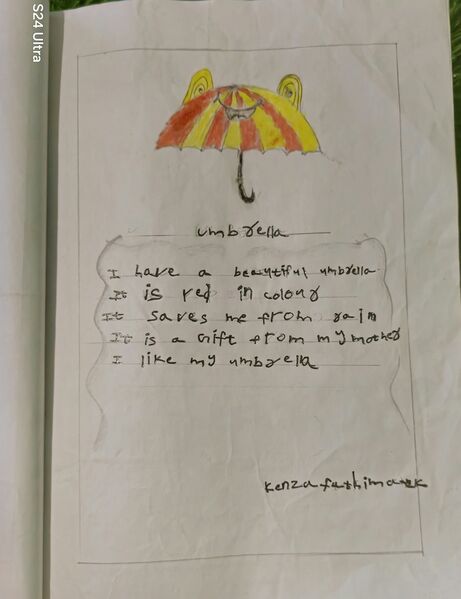 S24 Ultra
umbrella
I have a beautiful umbrella
It is red in colour
It saves me from rain
It is a gift from my mother
I like my umbrella
Kenza fathima